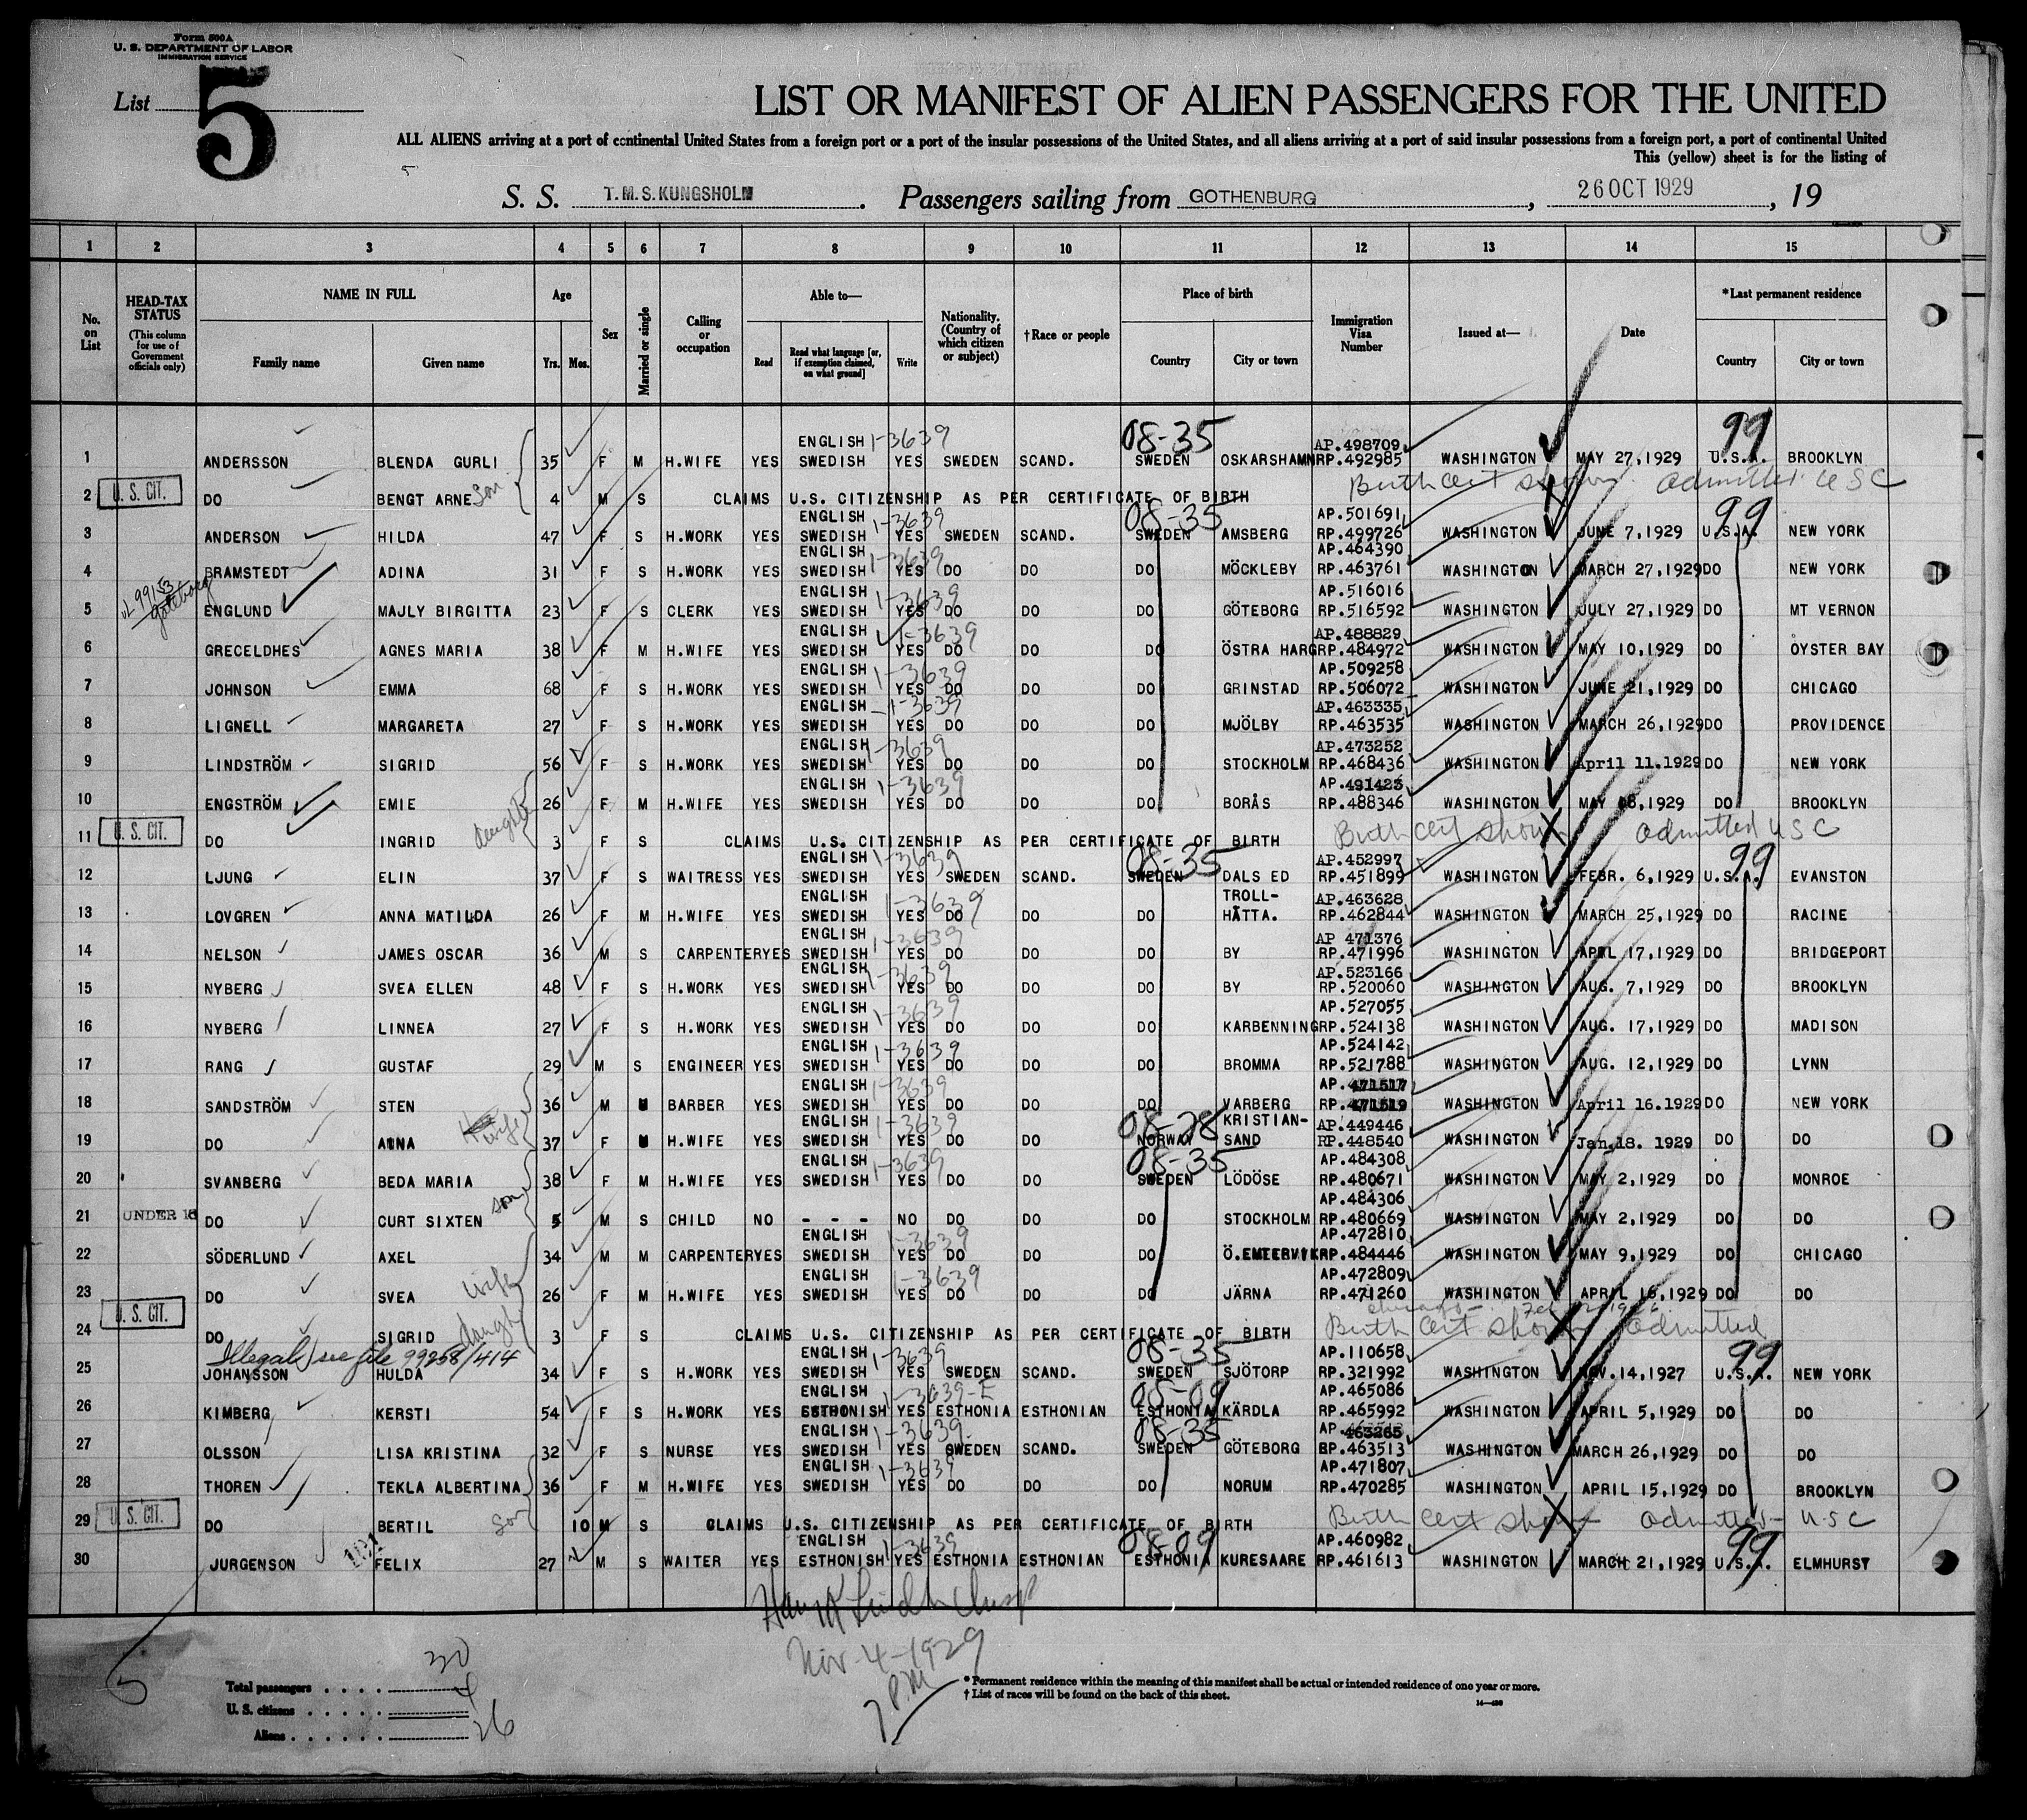 Form 500A
U. S. DEPARTMENT OF LABOR
IMMIGRATION SERVICE
List 5
LIST OR MANIFEST OF ALIEN PASSENGERS FOR THE UNITED
ALL ALIENS arriving at a port of continental United States from a foreign port or a port of the insular possessions of the United States, and all aliens arriving at a port of said insular possessions from a foreign port, a port of continental United
This (yellow) sheet is for the listing of
S. S. T.M.S. KUNGSHOLM. Passengers sailing from GOTHENBURG, 26 OCT 1929, 19
1 2 3 4 5 6 7 8 9 10 11 12 13 14 15
No. on List
HEAD-TAX STATUS (This column for use of Government officials only)
NAME IN FULL Family name Given name
Age Yrs. Mos.
Sex
Married or single
Calling or occupation
Able to— Read Read what language [or, if exemption claimed, on what ground] Write
Nationality. (Country of which citizen or subject)
†Race or people
Place of birth Country City or town
Immigration Visa Number
Issued at—
Date
*Last permanent residence Country City or town
ENGLISH 1-3639 08-35 AP.498709 99
1 ANDERSSON BLENDA GURLI 35 F M H.WIFE YES SWEDISH YES SWEDEN SCAND. SWEDEN OSKARSHAMN RP.492985 WASHINGTON MAY 27,1929 U.S.A. BROOKLYN
2 U.S. CIT. DO BENGT ARNE Son 4 M S CLAIMS U.S. CITIZENSHIP AS PER CERTIFICATE OF BIRTH Birth cert shown admitted USC
ENGLISH 1-3639 08-35 AP.501691 99
3 ANDERSON HILDA 47 F S H.WORK YES SWEDISH YES SWEDEN SCAND. SWEDEN AMSBERG RP.499726 WASHINGTON JUNE 7,1929 U.S.A. NEW YORK
ENGLISH 1-3639 AP.464390
4 BRAMSTEDT ADINA 31 F S H.WORK YES SWEDISH YES DO DO DO MÖCKLEBY RP.463761 WASHINGTON MARCH 27,1929 DO NEW YORK
ENGLISH 1-3639 AP.516016
5 ENGLUND MAJLY BIRGITTA 23 F S CLERK YES SWEDISH YES DO DO DO GÖTEBORG RP.516592 WASHINGTON JULY 27,1929 DO MT VERNON
ENGLISH 1-3639 AP.488829
6 GRECELDHES AGNES MARIA 38 F M H.WIFE YES SWEDISH YES DO DO DO ÖSTRA HARG RP.484972 WASHINGTON MAY 10,1929 DO OYSTER BAY
ENGLISH 1-3639 AP.509258
7 JOHNSON EMMA 68 F S H.WORK YES SWEDISH YES DO DO DO GRINSTAD RP.506072 WASHINGTON JUNE 21,1929 DO CHICAGO
ENGLISH 1-3639 AP.463335
8 LIGNELL MARGARETA 27 F S H.WORK YES SWEDISH YES DO DO DO MJÖLBY RP.463535 WASHINGTON MARCH 26,1929 DO PROVIDENCE
ENGLISH 1-3639 AP.473252
9 LINDSTRÖM SIGRID 56 F S H.WORK YES SWEDISH YES DO DO DO STOCKHOLM RP.468436 WASHINGTON April 11.1929 DO NEW YORK
ENGLISH 1-3639 AP.491423
10 ENGSTRÖM EMIE 26 F M H.WIFE YES SWEDISH YES DO DO DO BORÅS RP.488346 WASHINGTON MAY 08,1929 DO BROOKLYN
11 U.S. CIT. DO INGRID daughter 3 F S CLAIMS U.S. CITIZENSHIP AS PER CERTIFICATE OF BIRTH Birth cert shown admitted USC
ENGLISH 1-3639 08-35 AP.452997 99
12 LJUNG ELIN 37 F S WAITRESS YES SWEDISH YES SWEDEN SCAND. SWEDEN DALS ED RP.451899 WASHINGTON FEBR. 6,1929 U.S.A. EVANSTON
ENGLISH 1-3639 TROLL- AP.463628
13 LOVGREN ANNA MATILDA 26 F M H.WIFE YES SWEDISH YES DO DO DO HÄTTA. RP.462844 WASHINGTON MARCH 25,1929 DO RACINE
ENGLISH 1-3639 AP 471376
14 NELSON JAMES OSCAR 36 M S CARPENTER YES SWEDISH YES DO DO DO BY RP.471996 WASHINGTON APRL 17,1929 DO BRIDGEPORT
ENGLISH 1-3639 AP.523166
15 NYBERG SVEA ELLEN 48 F S H.WORK YES SWEDISH YES DO DO DO BY RP.520060 WASHINGTON AUG. 7,1929 DO BROOKLYN
ENGLISH 1-3639 AP.527055
16 NYBERG LINNEA 27 F S H.WORK YES SWEDISH YES DO DO DO KARBENNING RP.524138 WASHINGTON AUG. 17,1929 DO MADISON
ENGLISH 1-3639 AP.524142
17 RANG GUSTAF 29 M S ENGINEER YES SWEDISH YES DO DO DO BROMMA RP.521788 WASHINGTON AUG. 12,1929 DO LYNN
ENGLISH 1-3639 AP.471517
18 SANDSTRÖM STEN 36 M M BARBER YES SWEDISH YES DO DO DO VARBERG RP.471519 WASHINGTON April 16.1929 DO NEW YORK
ENGLISH 1-3639 08-28 KRISTIAN- AP.449446
19 DO ANNA wife 37 F M H.WIFE YES SWEDISH YES DO DO NORWAY SAND RP.448540 WASHINGTON Jan.18. 1929 DO DO
ENGLISH 1-3639 08-35 AP.484308
20 SVANBERG BEDA MARIA 38 F M H.WIFE YES SWEDISH YES DO DO SWEDEN LÖDÖSE RP.480671 WASHINGTON MAY 2,1929 DO MONROE
AP.484306
21 UNDER 16 DO CURT SIXTEN son 5 M S CHILD NO - - - NO DO DO DO STOCKHOLM RP.480669 WASHINGTON MAY 2,1929 DO DO
ENGLISH 1-3639 AP.472810
22 SÖDERLUND AXEL 34 M M CARPENTER YES SWEDISH YES DO DO DO Ö.EMTERVIK RP.484446 WASHINGTON MAY 9,1929 DO CHICAGO
ENGLISH 1-3639 AP.472809
23 DO SVEA wife 26 F M H.WIFE YES SWEDISH YES DO DO DO JÄRNA RP.471260 WASHINGTON APRIL 16,1929 DO DO
24 U.S. CIT. DO SIGRID daught 3 F S CLAIMS U.S. CITIZENSHIP AS PER CERTIFICATE OF BIRTH Birth cert shown admitted
Illegal, see file 99258/414 ENGLISH 1-3639 08-35 AP.110658 99
25 JOHANSSON HULDA 34 F S H.WORK YES SWEDISH YES SWEDEN SCAND. SWEDEN SJÖTORP RP.321992 WASHINGTON NOV.14,1927 U.S.A. NEW YORK
ENGLISH 1-3639-E 08-09 AP.465086
26 KIMBERG KERSTI 54 F S H.WORK YES ESTHONISH YES ESTHONIA ESTHONIAN ESTHONIA KÄRDLA RP.465992 WASHINGTON APRIL 5,1929 DO DO
ENGLISH 1-3639 08-35 AP 463265
27 OLSSON LISA KRISTINA 32 F S NURSE YES SWEDISH YES SWEDEN SCAND. SWEDEN GÖTEBORG RP.463513 WASHINGTON MARCH 26,1929 DO DO
ENGLISH 1-3639 AP.471807
28 THOREN TEKLA ALBERTINA 36 F M H.WIFE YES SWEDISH YES DO DO DO NORUM RP.470285 WASHINGTON APRIL 15,1929 DO BROOKLYN
29 U.S. CIT. DO BERTIL son 10 M S CLAIMS U.S. CITIZENSHIP AS PER CERTIFICATE OF BIRTH Birth cert shown admitted USC
ENGLISH 1-3639 08-09 AP.460982 99
30 JURGENSON FELIX 27 M S WAITER YES ESTHONISH YES ESTHONIA ESTHONIAN ESTHONIA KURESAARE RP.461613 WASHINGTON MARCH 21,1929 U.S.A. ELMHURST
Nov-4-1929
7 PM
Total passengers . . . . 30
U. S. citizens . . . . . 4
Aliens . . . . . . 26
* Permanent residence within the meaning of this manifest shall be actual or intended residence of one year or more.
† List of races will be found on the back of this sheet.